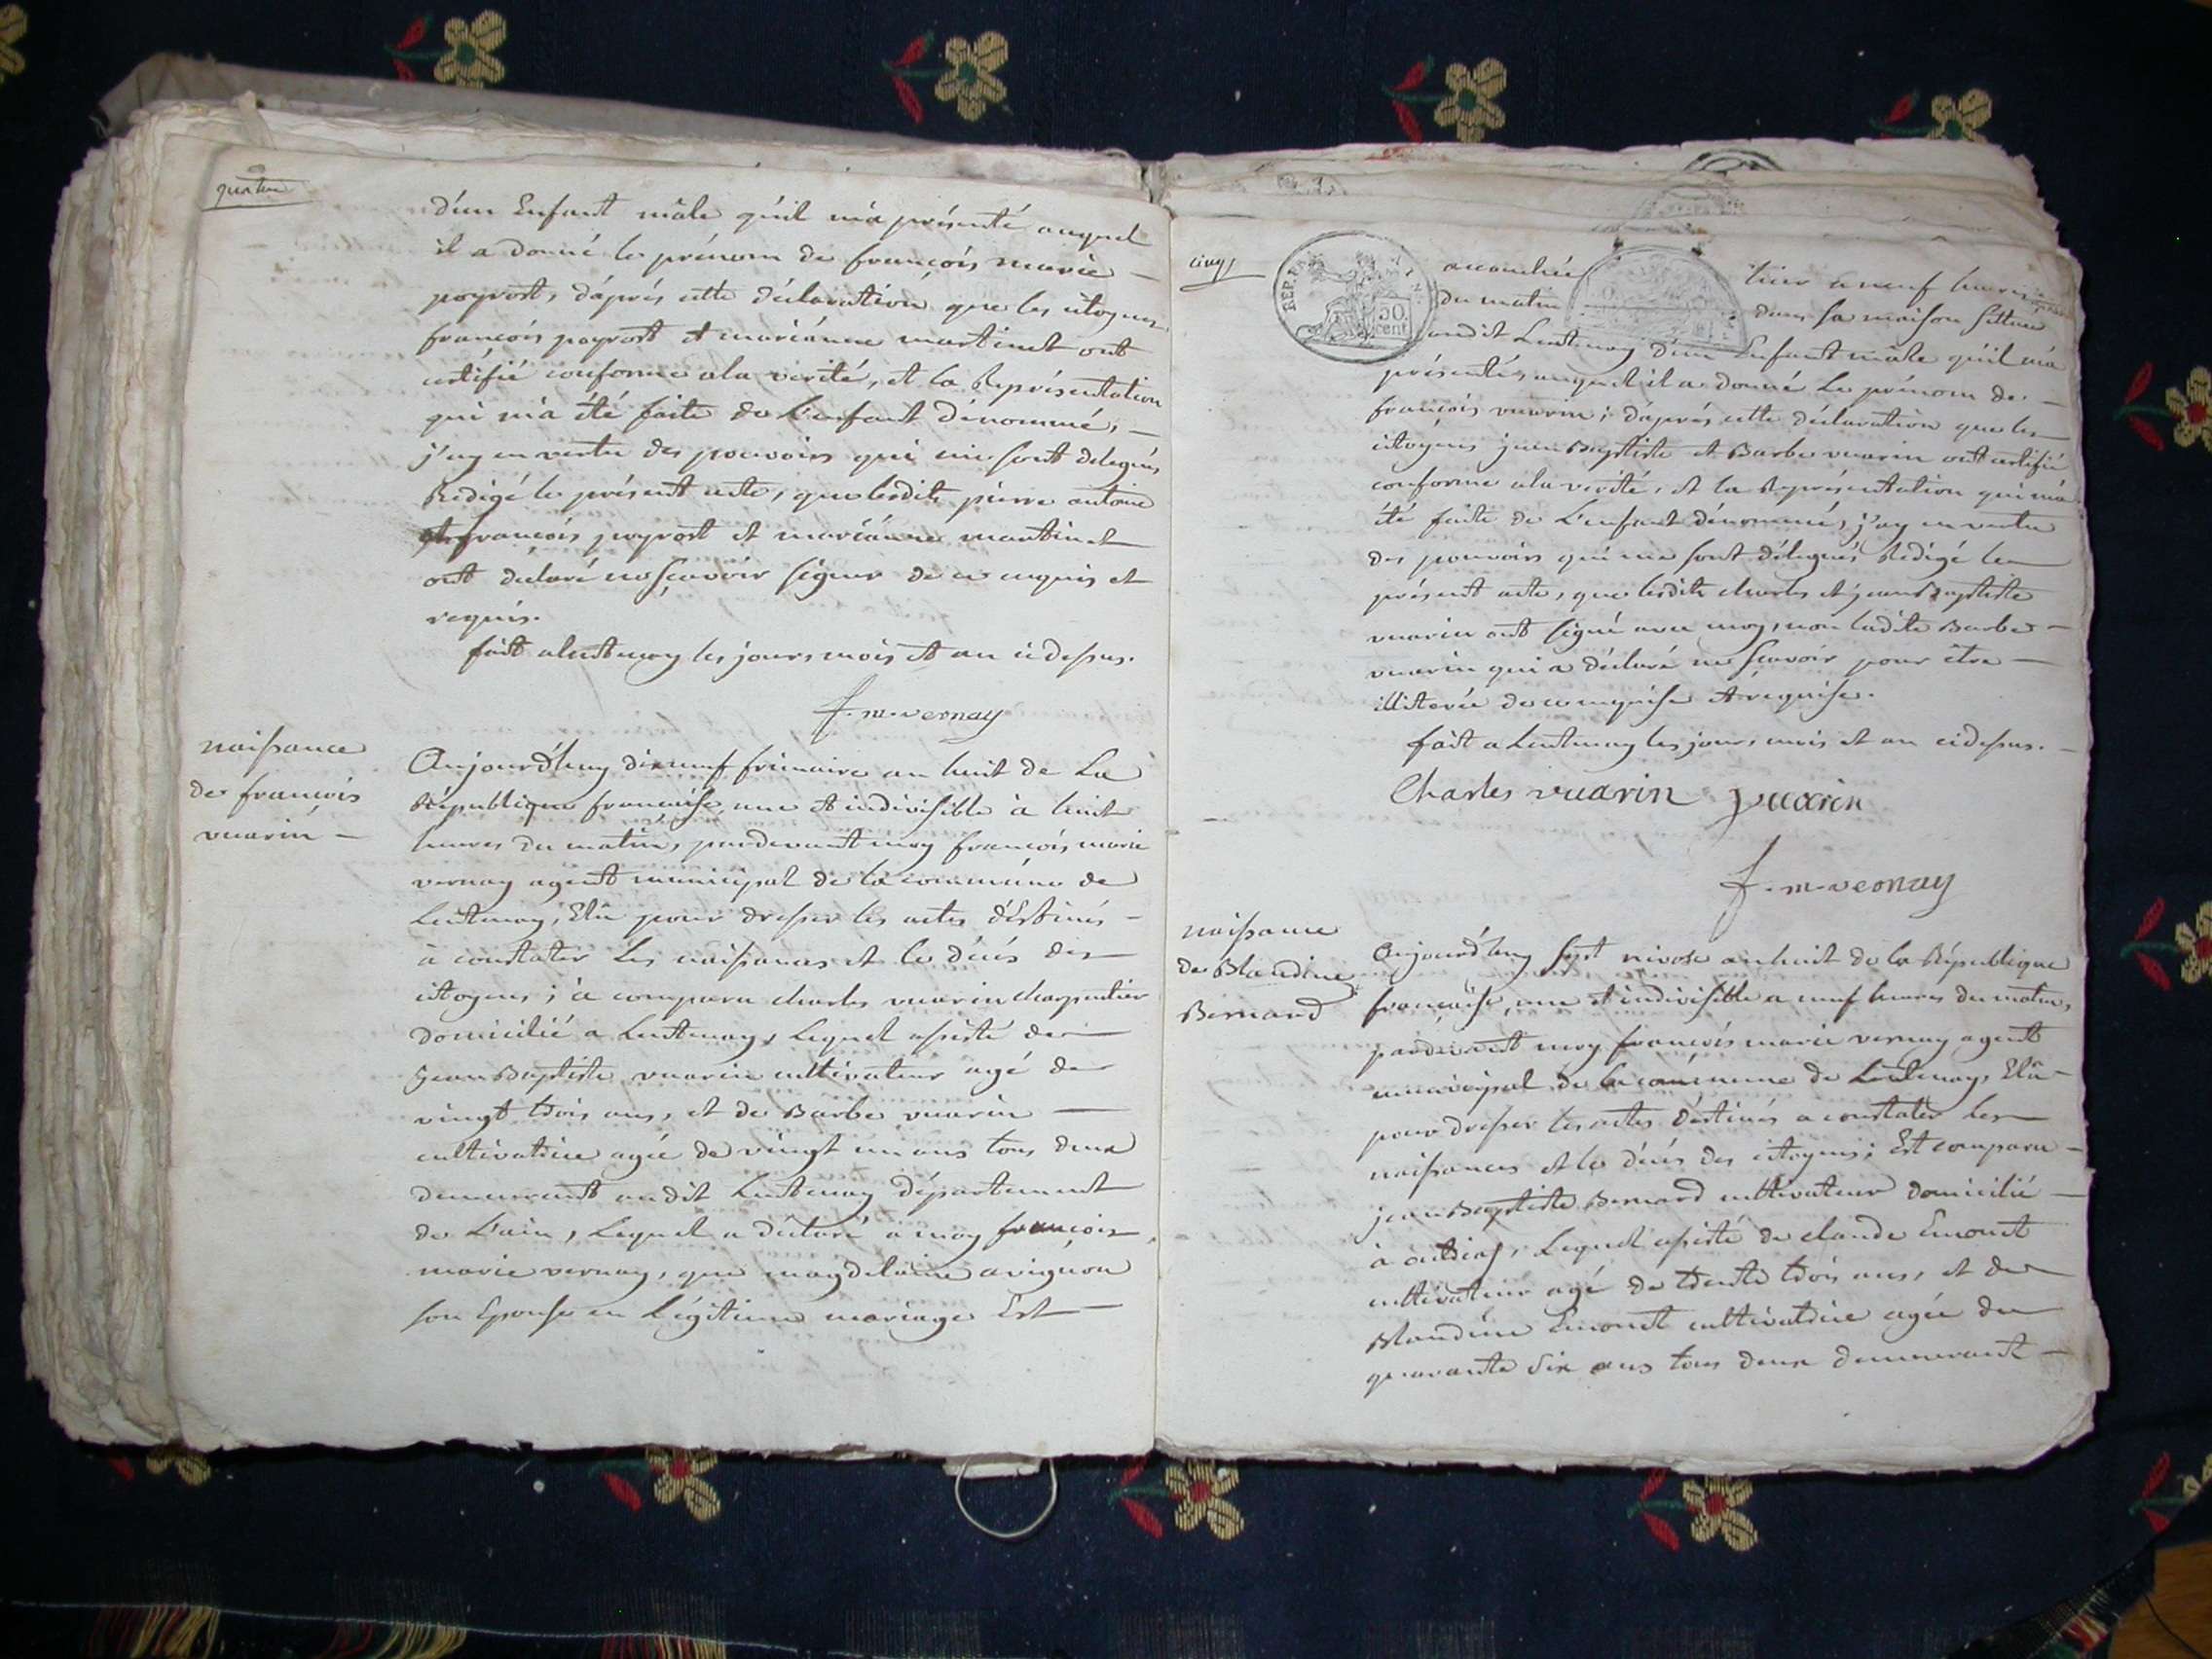 quatre
d'un Enfant mâle qu'il m'a présenté auquel
il a donné le prénom de françois marie —
poyvost, d'aprés cette déclaration que les citoyens
françois poyvost et mariánne martinet ont
certifié conforme a la verité, et la Représentation
qui m'a été faite de L'enfant dénommé, —
j'ay en vertu des pouvoirs qui me sont delegués
Redigé le présent acte, que lesdits pierre antoine
et françois poyvost et mariánne martinet
ont declaré ne sçavoir signer de ce enquis et
requis.
fait a lentenay les jours mois et an cidessus.
f. m. vernay
naissance
de françois
vuarin —
Aujourd'huy dixneuf frimaire an huit de La
République française une et indivisible à huit
heures du matin, pardevant moy françois marie
vernay agent municipal de la commune de
Lentenay, Elû pour dresser les actes déstinés —
à constater Les naissances et le décés des
citoyens ; à comparu charles vuarin charpentier
domicilié a Lentenay, Lequel assisté de —
jean Baptiste vuarin cultivateur agé de
vingt trois ans, et de Barbe vuarin —
cultivatrice agée de vingt un ans tous deux
demeurant audit Lentenay département
de L'ain, Lequel a déclaré à moy françois
marie vernay, que magdelaine avignon
son Epouse en Légitime mariage Est —
cinq
REP. FRA
50.
cent.
accouchée hier a neuf heures
du matin dans sa maison sittuée
audit Lentenay d'un Enfant mâle qu'il m'a
présenté, auquel il a donné Le prénom de —
françois vuarin ; d'aprés cette déclaration que les
citoyens jean Baptiste et Barbe vuarin ont certifié
conforme a la verité, et la Représentation qui m'a
été faite de L'enfant dénommé, j'ay en vertu
des pouvoirs qui me sont délegués Redigé le
présent acte, que lesdits charles et jean Baptiste
vuarin ont signé avec moy, non ladite Barbe —
vuarin qui a déclaré ne sçavoir pour être —
illiterée de ce enquise et requise.
fait a Lentenay les jour, mois et an cidessus. —
Charles vuarin j vuarin
f. m. vernay
naissance
de Blandine
Bernard
Aujourd'huy sept nivose an huit de la République
française, une et indivisible a neuf heures du matin,
pardevant moy françois marie vernay agent
municipal de la commune de Lentenay, Elû —
pour dresser les actes déstinés a constater les
naissances et le décés des citoyens ; Est comparu —
jean Baptiste Bernard cultivateur domicilié —
à Lequel assisté de claude Emonet
cultivateur agé de trente trois ans, et de
Blandine Emonet cultivatrice agée de
quarante six ans tous deux demeurant —